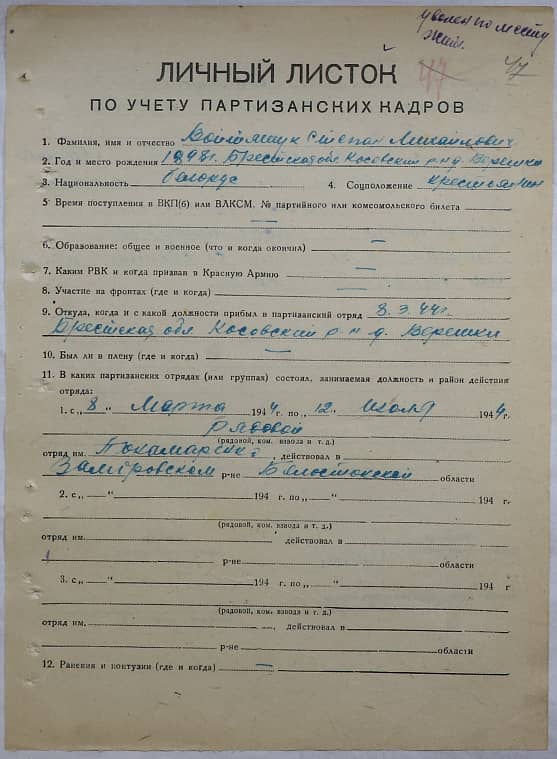 уволен по месту
жит.
47 47
ЛИЧНЫЙ ЛИСТОК
ПО УЧЕТУ ПАРТИЗАНСКИХ КАДРОВ
1. Фамилия, имя и отчество Степан Михайлович
2. Год и место рождения 1898 г. Брестская обл. Косовский р-н д. Верешки
3. Национальность белорус 4. Соцположение крестьянин
5. Время поступления в ВКП(б) или ВЛКСМ, № партийного или комсомольского билета
—
6. Образование: общее и военное (что и когда окончил) —
7. Каким РВК и когда призван в Красную Армию —
8. Участие на фронтах (где и когда) —
9. Откуда, когда и с какой должности прибыл в партизанский отряд 8.3.44 г.
Брестская обл. Косовский р-н д. Верешки
10. Был ли в плену (где и когда) —
11. В каких партизанских отрядах (или группах) состоял, занимаемая должность и район действия
отряда:
1. с „8„ Марта 1944 г. по „12„ июля 1944 г.
рядовой
(рядовой, ком. взвода и т. д.)
отряд им. действовал в
р-не Белостокской области
2. с „ “ 194 г. по „ “ 194 г.
(рядовой, ком. взвода и т. д.)
отряд им. действовал в
р-не области
3. с „ “ 194 г. по „ “ 194 г
(рядовой, ком. взвода и т. д.)
отряд им. действовал в
р-не области
12. Ранения и контузии (где и когда) —